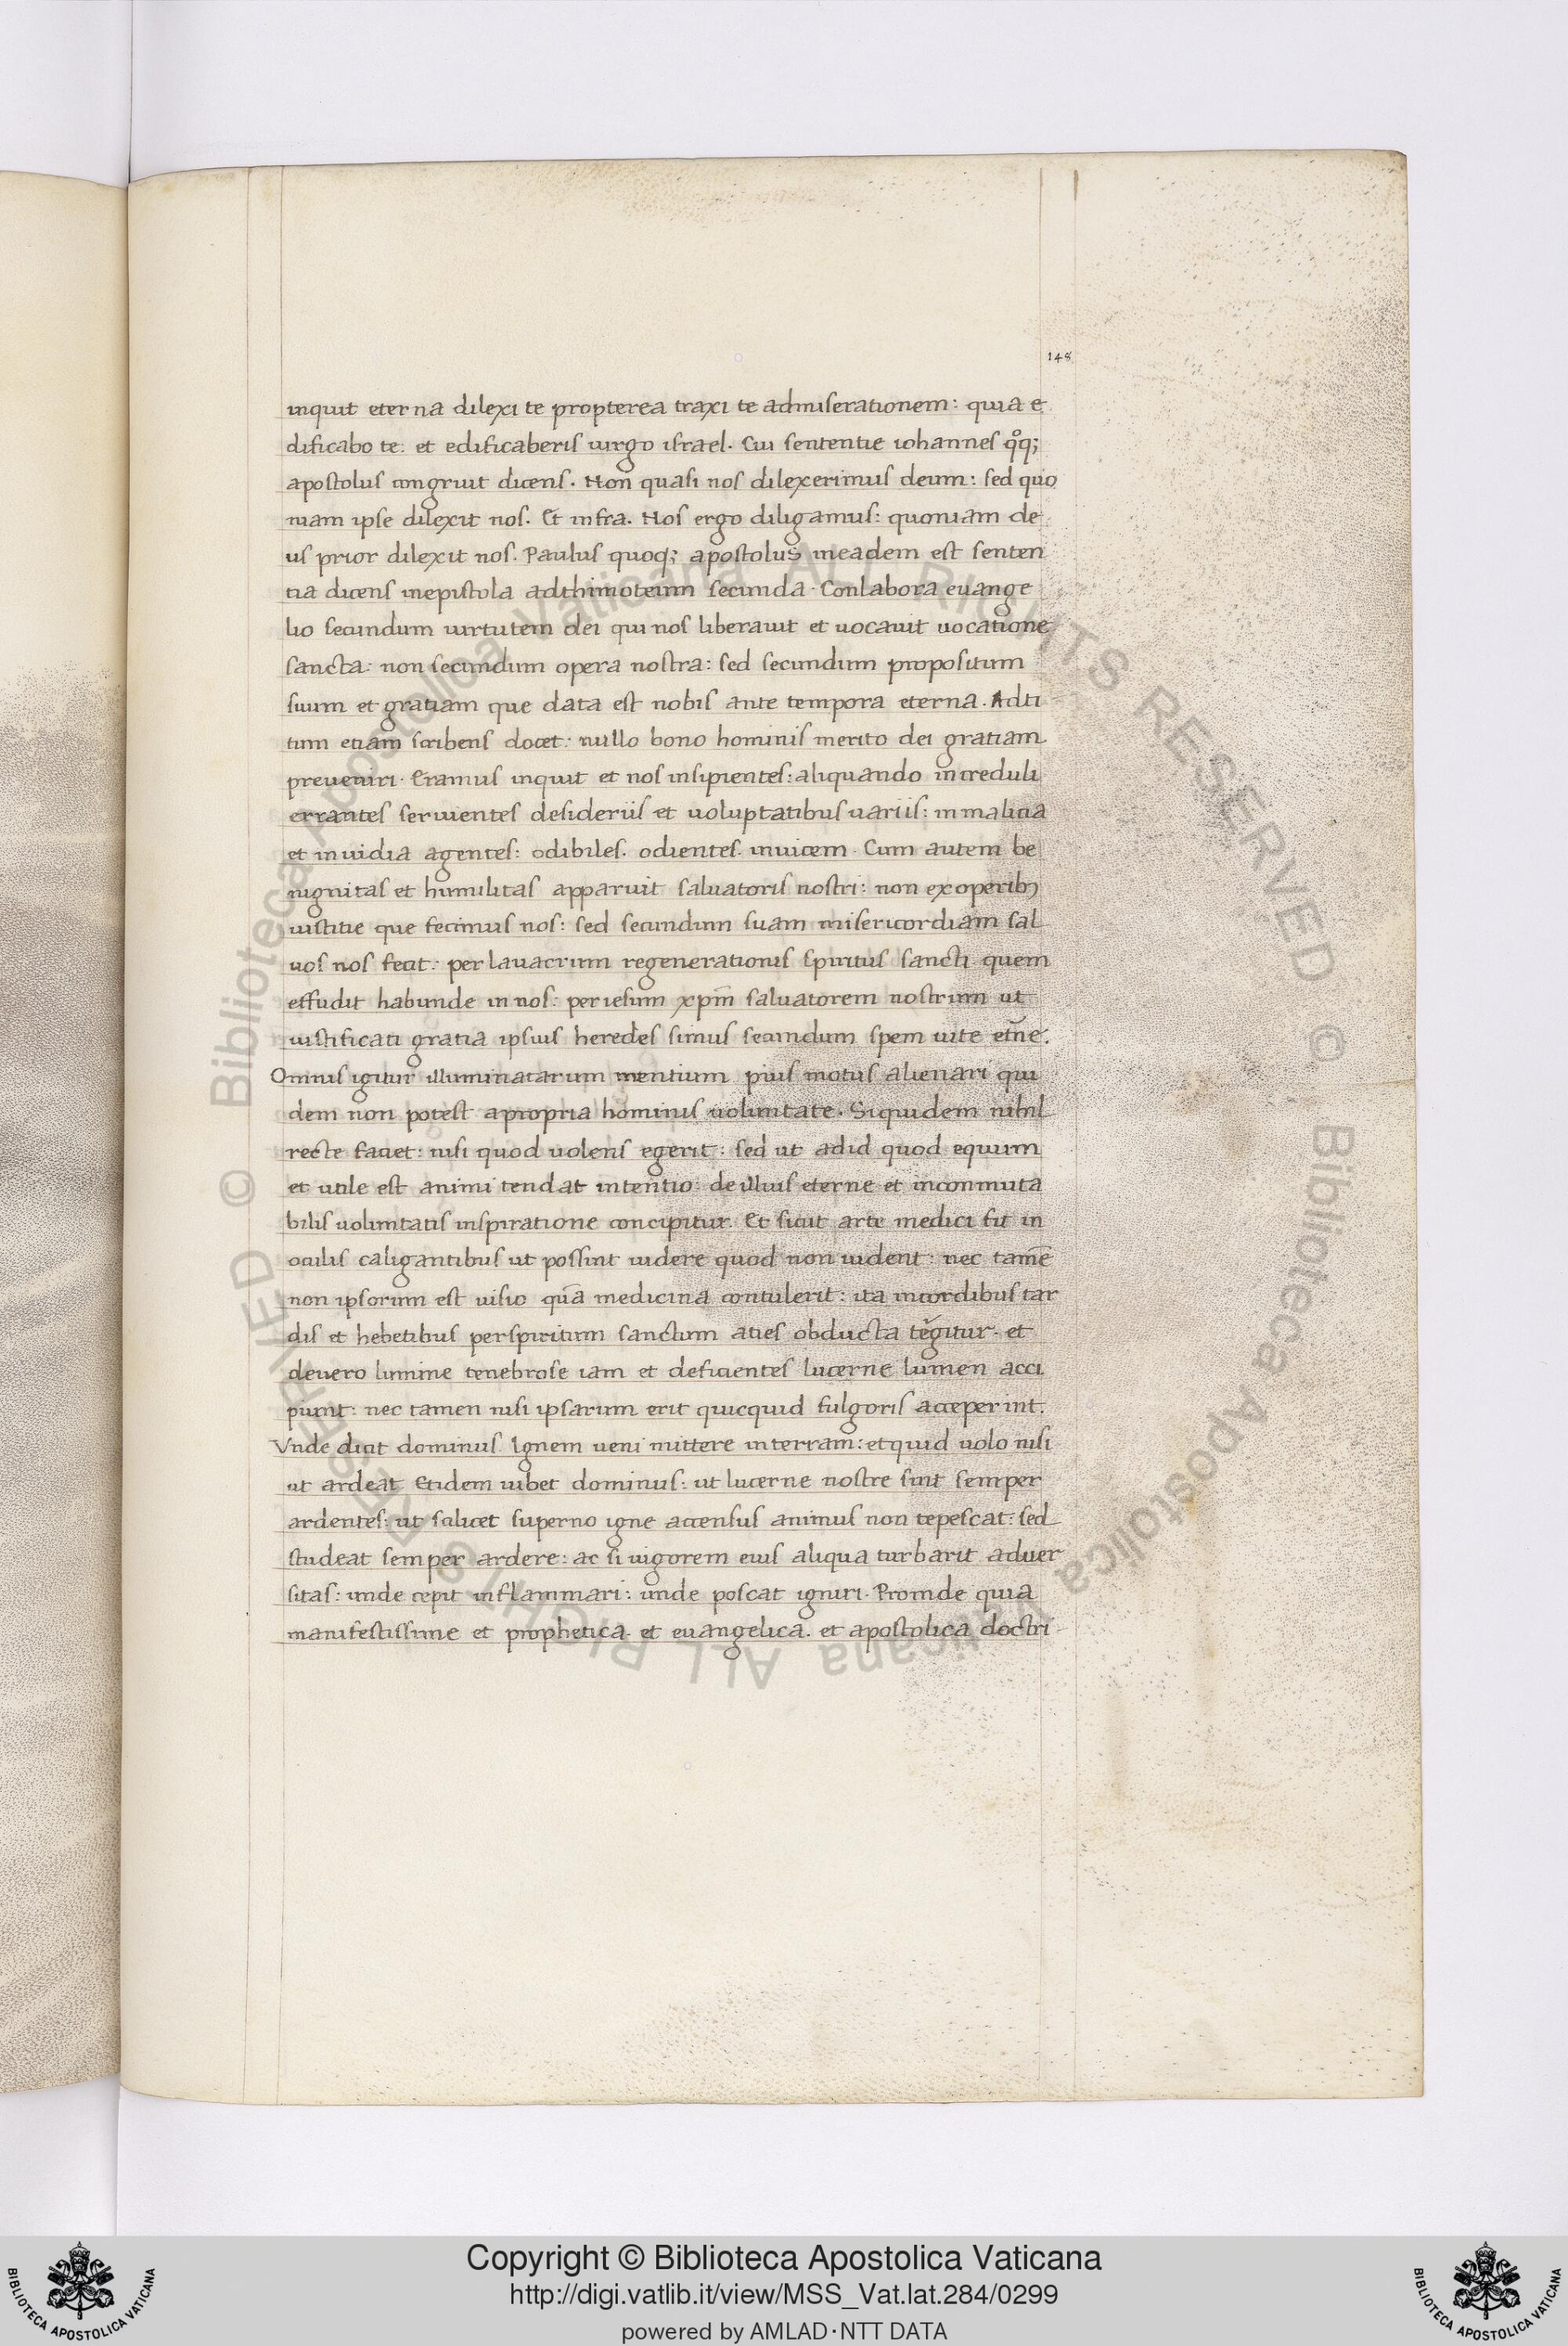 148
inquit eterna dilexi te propterea traxi te admiserationem: quia e
dificabo te: et edificaberis uirgo israel. Cui sententie iohannes qͦq;
apostolus congruit dicens. Non quasi nos dilexerimus deum: sed quo
niam ipse dilexit nos. Et infra. Nos ergo diligamus: quoniam de
us prior dilexit nos. Paulus quoq; apostolus ineadem est senten
tia dicens inepistola adthimoteum secunda. Conlabora euange
lio secundum uirtutem dei qui nos liberauit et uocauit uocatione
sancta: non secundum opera nostra: sed secundum propositum
suum et gratiam que data est nobis ante tempora eterna. Adti
tum etiam scribens docet: nullo bono hominis merito dei gratiam
preueniri. Eramus inquit et nos insipientes: aliquando increduli
errantes seruientes desideriis et uoluptatibus uariis: in malitia
et inuidia agentes: odibiles. odientes. inuicem. Cum autem be
nignitas et humilitas apparuit saluatoris nostri: non ex operibꝫ
iustitie que fecimus nos: sed secundum suam misericordiam sal
uos nos fecit: per lauacrum regenerationis spiritus sancti quem
effudit habunde in nos: per iesum xp̄m saluatorem nostrum ut
iustificati gratia ipsius heredes simus secundum spem uite et̄ne.
Omnis igitur illuminatarum mentium pius motus alienari qui
dem non potest apropria hominis uoluntate. Siquidem nihil
recte fauet: nisi quod uolens egerit: sed ut adid quod equum
et utile est animi tendat intentio: de illius eterne et inconmuta
bilis uoluntatis inspiratione concipitur. Et sicut arte medici fit in
oculis caligantibus ut possint uidere quod non uident: nec tamē
non ipsorum est uisio quā medicina contulerit: ita incordibus tar
dis et hebetibus perspiritum sanctum aties obducta tegitur. et
deuero lumine tenebrose iam et deficientes lucerne lumen acci
piunt: nec tamen nisi ipsarum erit quicquid fulgoris acceperint.
Vnde dicit dominus. Ignem ueni mittere interram: etquid uolo nisi
ut ardeat. Etidem iubet dominus: ut lucerne nostre sint semper
ardentes: ut scilicet superno igne accensus animus non tepescat: sed
studeat semper ardere: ac si uigorem eius aliqua turbarit aduer
sitas: unde cepit inflammari: unde poscat igniri. Proinde quia
manifestissime et prophetica. et euangelica. et apostolica doctri
© Biblioteca Apostolica Vaticana ALL RIGHTS RESERVED © Biblioteca Apostolica Vaticana ALL RIGHTS RESERVED
Copyright © Biblioteca Apostolica Vaticana
http://digi.vatlib.it/view/MSS_Vat.lat.284/0299
powered by AMLAD·NTT DATA
BIBLIOTECA APOSTOLICA VATICANA
BIBLIOTECA APOSTOLICA VATICANA